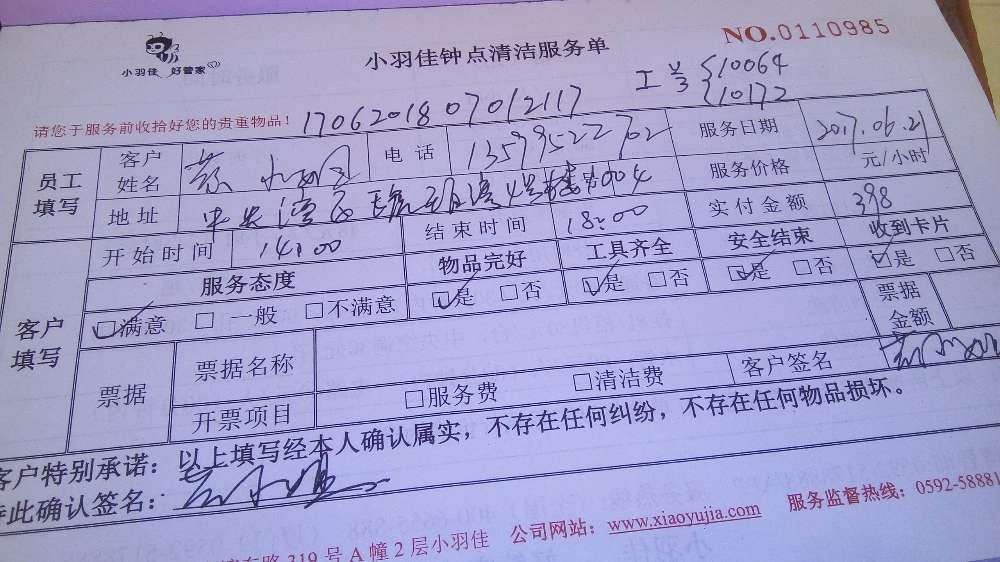 小羽佳 好管家
小羽佳钟点清洁服务单
NO.0110985
请您于服务前收拾好您的贵重物品!
1706201807012117
工号 10064
10172
员工填写
客户姓名
电话 13599522702
服务日期 2017.06.21
地址
服务价格 元/小时
开始时间 14:00
结束时间 18:00
实付金额 398
客户填写
服务态度 物品完好 工具齐全 安全结束 收到卡片
☑满意 □一般 □不满意 ☑是 □否 ☑是 □否 ☑是 □否 ☑是 □否
票据 票据名称 票据金额
开票项目 □服务费 □清洁费 客户签名
客户特别承诺:以上填写经本人确认属实,不存在任何纠纷,不存在任何物品损坏。
特此确认签名:
路319号A幢2层小羽佳 公司网站:www.xiaoyujia.com 服务监督热线:0592-58881